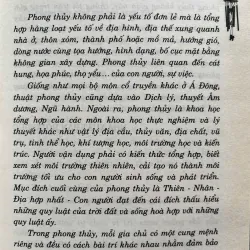 Phong thủy không phải là yếu tố đơn lẻ mà là tổng
hợp hàng loạt yếu tố về địa hình, địa thế xung quanh
nhà ở, thôn xóm, thành phố hoặc mồ mả, hướng gió,
dòng nước cùng tọa hướng, hình dạng, bố cục mặt bằng
không gian xây dựng. Phong thủy liên quan đến cát
hung, họa phúc, thọ yểu... của con người, sự việc.
Giống như mọi bộ môn cổ truyền khác ở Á Đông,
thuật phong thủy cũng dựa vào Dịch lý, thuyết Âm
dương, Ngũ hành. Ngoài ra, phong thủy là khoa học
tổng hợp của các môn khoa học thực nghiệm và lý
thuyết khác như vật lý địa cầu, thủy văn, địa chất, vũ
trụ, tinh thể học, khí tượng học, môi trường học và kiến
trúc. Người vận dụng phải có kiến thức tổng hợp, biết
xem xét môi trường thiên nhiên, cải tạo nó thành môi
trường tối ưu cho con người sinh sống và phát triển.
Mục đích cuối cùng của phong thủy là Thiên - Nhân -
Địa hợp nhất - Con người đạt đến cái đích thấu hiểu
những quy luật của trời đất và sống hoà hợp với những
quy luật ấy.
Trong phong thủy, mỗi gia chủ có một cung mệnh
riêng và đều có cách bài trí khác nhau nhằm đảm bảo